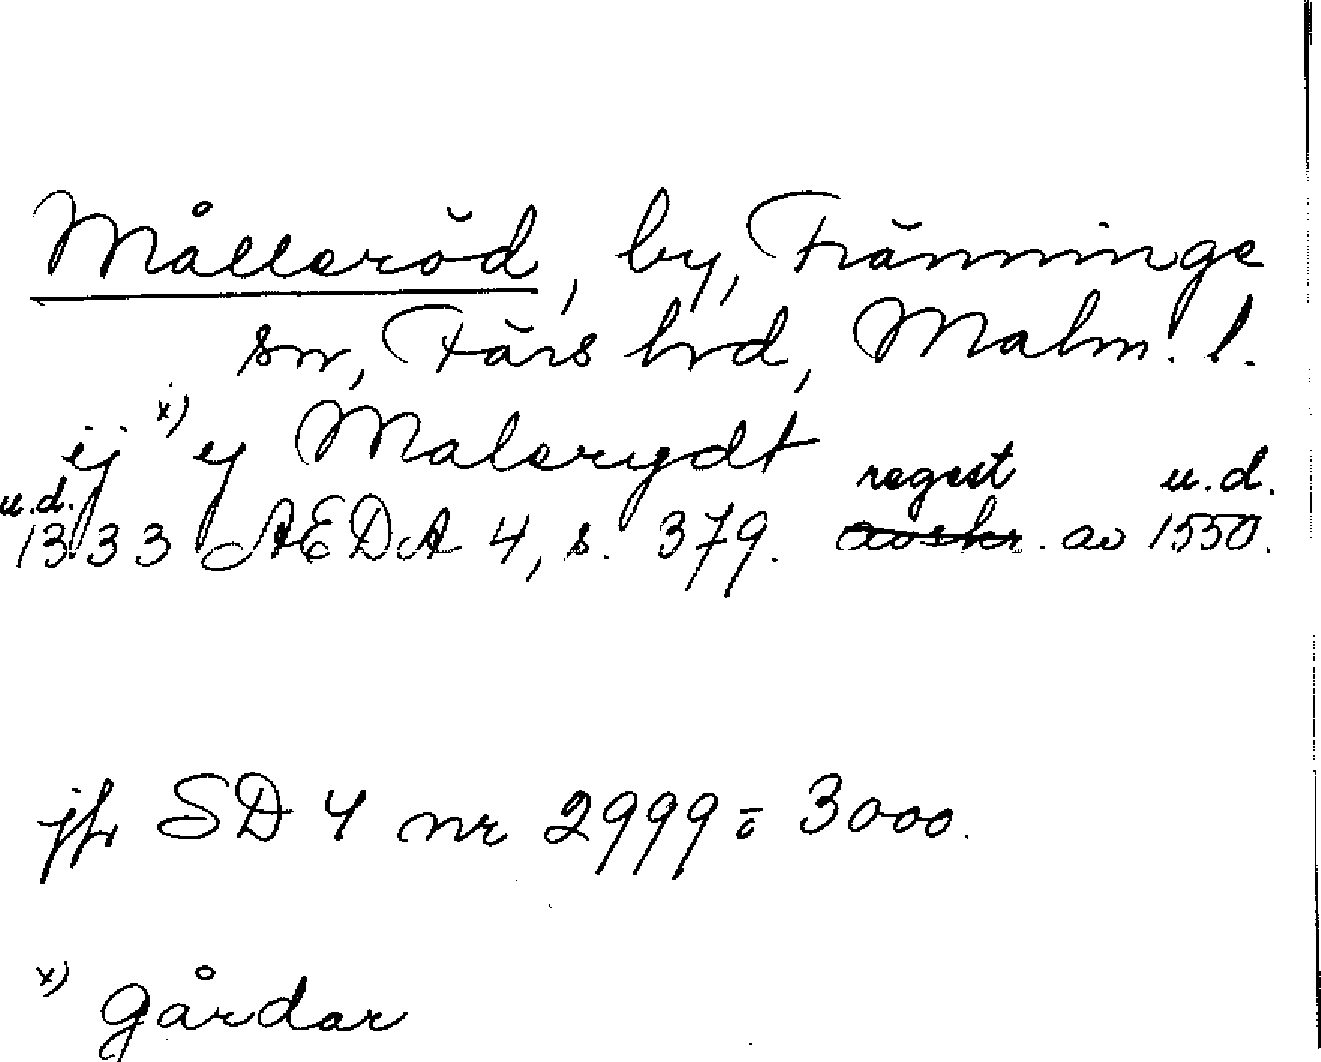 Målleröd, by, Tränninge
sn, Färs hrd, Malm. l.
ij x) y Malerydt
u.d. 1333 AEDA 4, s. 379. regest avskr. av u.d. 1550.
jfr SD 4 nr 2999 = 3000.
x) gårdar